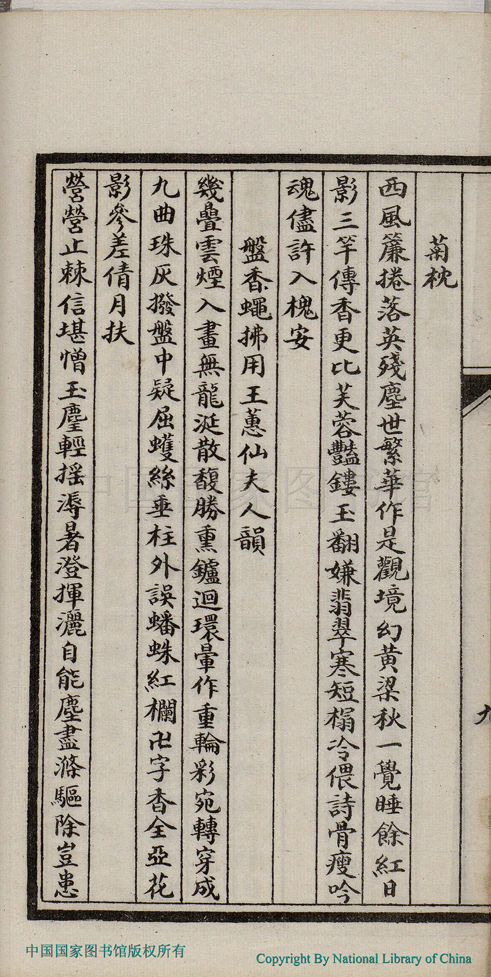 九
菊枕
西風簾捲落英殘塵世繁華作是觀境幻黃梁秋一覺睡餘紅日
影三竿傳香更比芙蓉豔鏤玉翻嫌翡翠寒短榻冷偎詩骨瘦吟
魂儘許入槐安
盤香蠅拂用王蕙仙夫人韻
幾疊雲煙入畫無龍涎散馥勝熏鑪迴環暈作重輪彩宛轉穿成
九曲珠灰撥盤中疑屈蠖絲垂柱外誤蟠蛛紅欄卍字香全亞花
影參差倩月扶
營營止棘信堪憎玉麈輕搖溽暑澄揮灑自能塵盡滌驅除豈患
中国国家图书馆
中国国家图书馆版权所有
Copyright By National Library of China